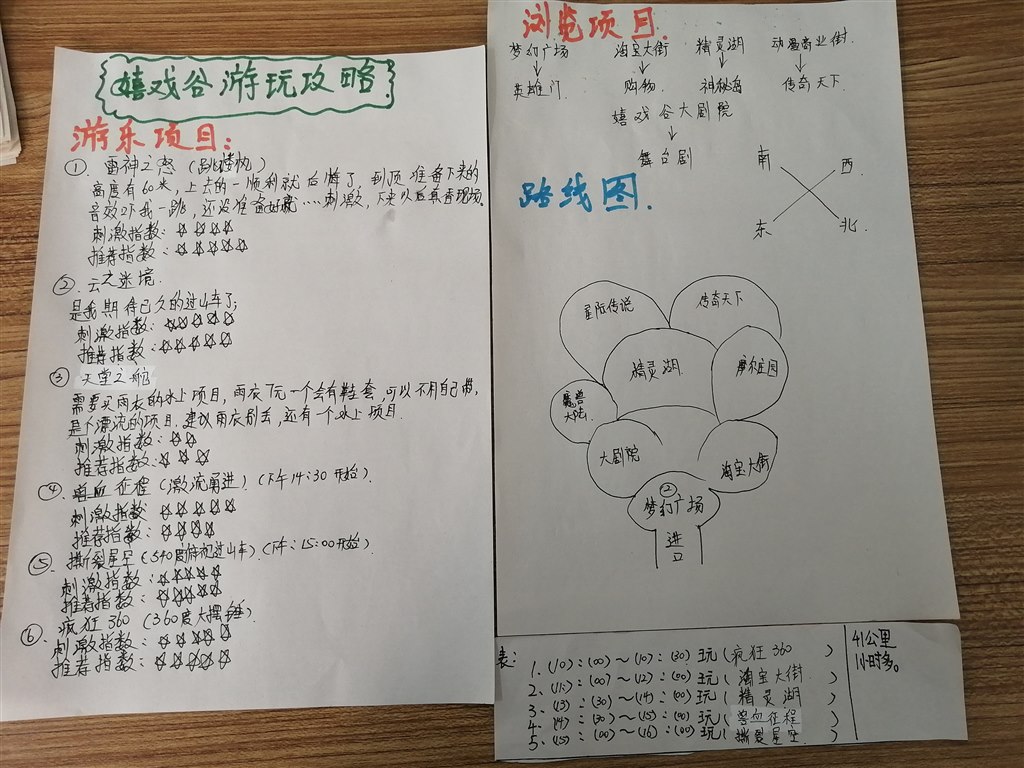 嬉戏谷游玩攻略.
游乐项目：
① 雷神之怒（跳楼机）
高度有60米，上去的一顺利就后悔了，到顶准备下来的
音效吓我一跳，还没准备好呢……刺激，
刺激指数：☆☆☆☆
推荐指数：☆☆☆☆☆
②. 云之迷境.
是我期待已久的过山车了；
刺激指数：☆☆☆☆☆
推荐指数：☆☆☆☆☆
③ 天堂之舵
需要买雨衣的水上项目，雨衣7元一个会有鞋套，可以不用自己带，
是个漂流的项目.建议雨衣别丢，还有一个水上项目.
刺激指数：☆☆
推荐指数：☆☆☆
④. 兽血征程（激流勇进）（下午14:30开始）.
刺激指数 ☆☆☆☆☆
推荐指数：☆☆☆☆
⑤. 撕裂星空（540度俯视过山车）（下午：15:00开始）.
刺激指数：☆☆☆☆☆
推荐指数：☆☆☆☆☆
⑥. 疯狂360（360度大摆锤）
刺激指数：☆☆☆☆☆
推荐指数：☆☆☆☆☆
浏览项目.
梦幻广场 淘宝大街 精灵湖 动漫商业街.
↓ ↓ ↓ ↓
英雄门. 购物. 神秘岛 传奇天下
嬉戏谷大剧院
↓
舞台剧
路线图.
南 西
东 北
星际传说 传奇天下
精灵湖 摩尔庄园
魔兽
大陆.
大剧院 淘宝大街
②
梦幻广场
进
口
表：
1.（10）：（00）～（10）：（30）玩（疯狂360）
2.（11）：（00）～（12）：（00）玩（淘宝大街.）
3.（13）：（30）～（14）：（00）玩（精灵湖）
4.（14）：（30）～（15）：（00）玩（兽血征程）
5.（15）：（00）～（16）：（00）玩（撕裂星空.）
41公里
1小时多。